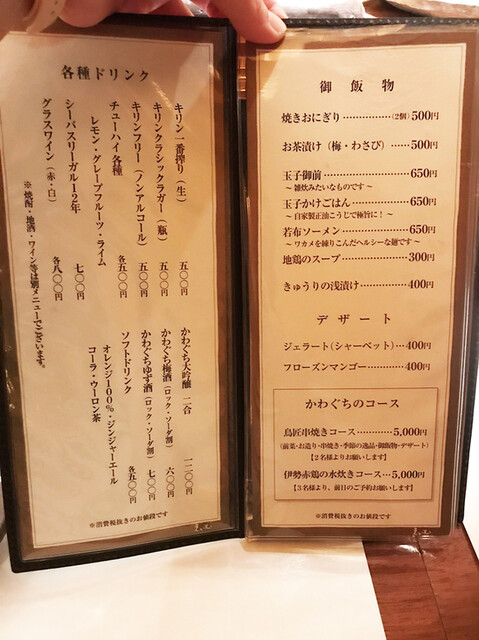 各種ドリンク
キリン一番搾り(生) 五〇〇円
キリンクラシックラガー(瓶) 五〇〇円
キリンフリー(ノンアルコール) 五〇〇円
チューハイ各種 各五〇〇円
レモン・グレープフルーツ・ライム
シーバスリーガル12年 七〇〇円
グラスワイン(赤・白) 各八〇〇円
※焼酎・地酒・ワイン等は別メニューでございます。
かわぐち大吟醸 二合 一二〇〇円
かわぐち梅酒(ロック・ソーダ割) 六〇〇円
かわぐちゆず酒(ロック・ソーダ割) 七〇〇円
ソフトドリンク 各五〇〇円
オレンジ100%・ジンジャーエール
コーラ・ウーロン茶
※消費税抜きのお値段です
御飯物
焼きおにぎり……………(2個)500円
お茶漬け(梅・わさび)……500円
玉子御前……………………650円
～雑炊みたいなものです～
玉子かけごはん……………650円
～自家製正油こうじで極旨に!～
若布ソーメン………………650円
～ワカメを練りこんだヘルシーな麺です～
地鶏のスープ………………300円
きゅうりの浅漬け…………400円
デザート
ジェラート(シャーベット)…400円
フローズンマンゴー………400円
かわぐちのコース
鳥匠串焼きコース……5,000円
(前菜・お造り・串焼き・季節の逸品・御飯物・デザート)
【2名様よりお願いします】
伊勢赤鶏の水炊きコース…5,000円
【3名様より、前日のご予約お願いします】
※消費税抜きのお値段です